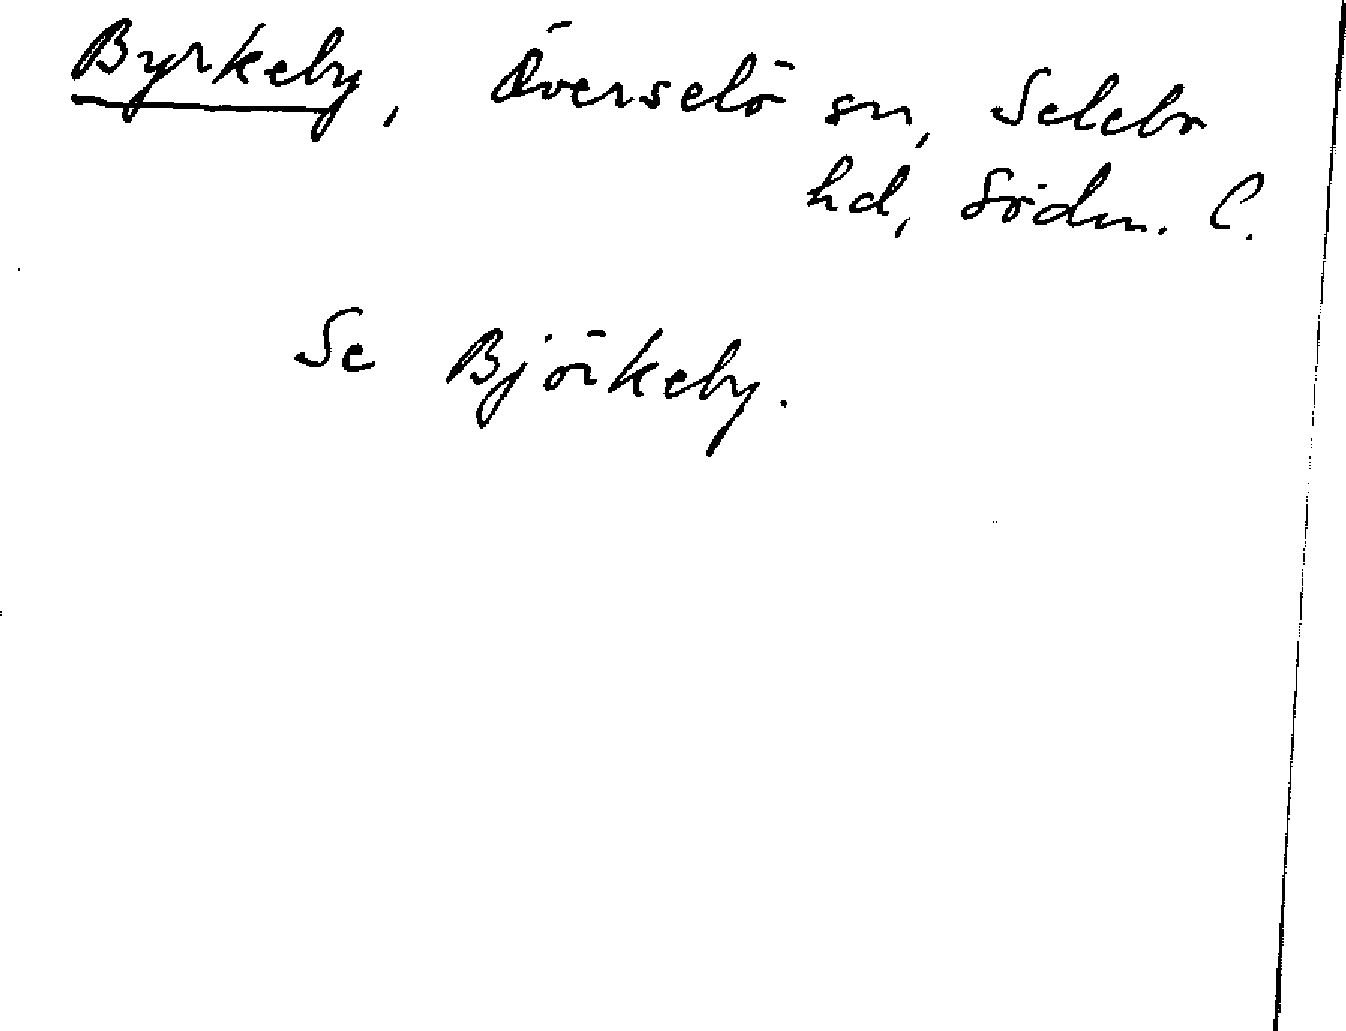 Byrkeby, Överselö sn, Selebo
hd, Södm. l.
Se Björkeby.